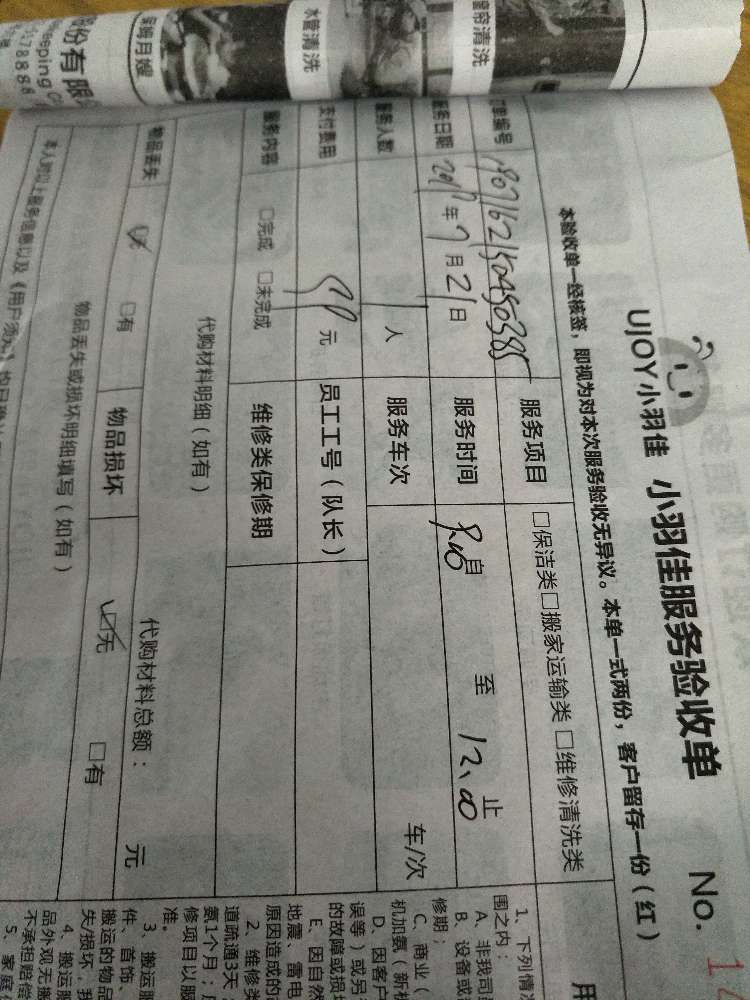 UJOY小羽佳 小羽佳服务验收单 No.
本验收单一经核签，即视为对本次服务验收无异议。本单一式两份，客户留存一份（红）
服务项目 □保洁类□搬家运输类 □维修清洗类
服务日期 年7月21日 服务时间 自 至 12:00 止
服务人数 1人 服务车次 车/次
支付费用 元 员工工号（队长）
服务内容 □完成 □未完成 维修类保修期
代购材料明细（如有） 代购材料总额： 元
物品丢失 无 □有 物品损坏 □无 □有
物品丢失或损坏明细填写（如有）
本人对以上服务信息以及《用户须知》均已
1、下列情
围之内：
A、非我司
B、设备或
修期；
C、商业（
机加氨（新
D、因客户
误等）或另
的故障或损
E、因自然
地震、雷电
2、维修类
原因造成的
道疏通3天
氨1个月；
修项目以服
准。
3、搬运服
件、首饰、
搬运的物品
失/损坏，我
4、搬运服
品外观无搬
不承担赔偿
5、家庭
保姆月嫂
水管清洗
窗帘清洗
份有限
eeping C
78888